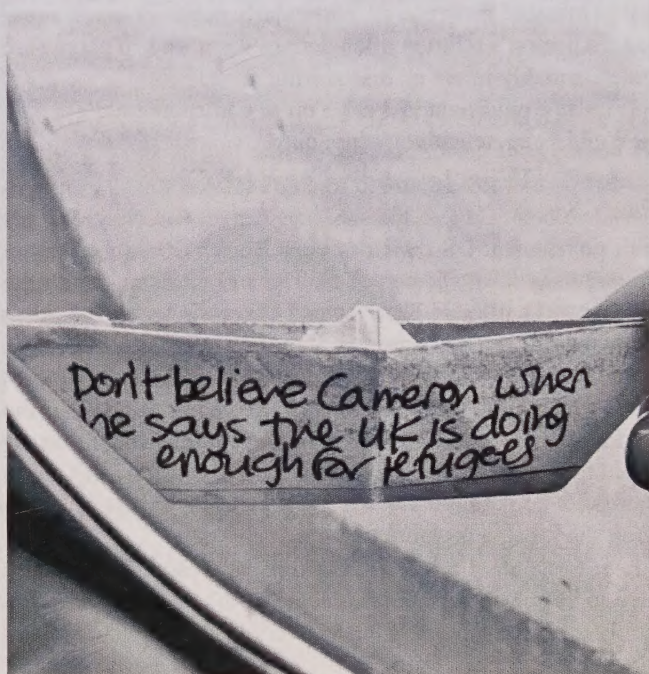 Don't believe Cameron when
he says the UK is doing
enough for refugees